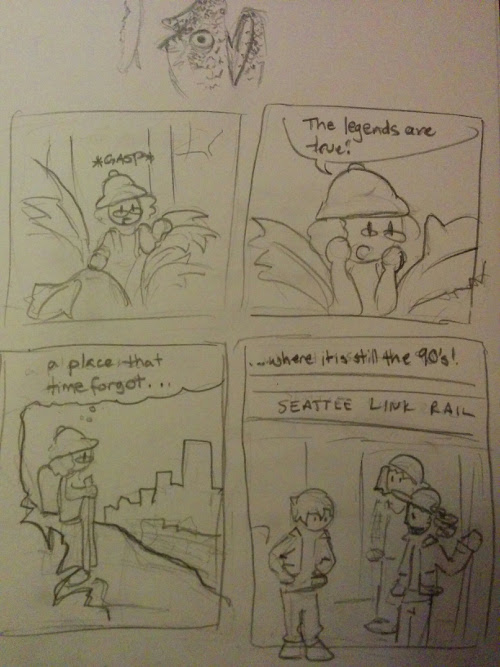 *GASP*
The legends are
true!
a place that
time forgot...
...where it is still the 90's!
SEATTLE LINK RAIL